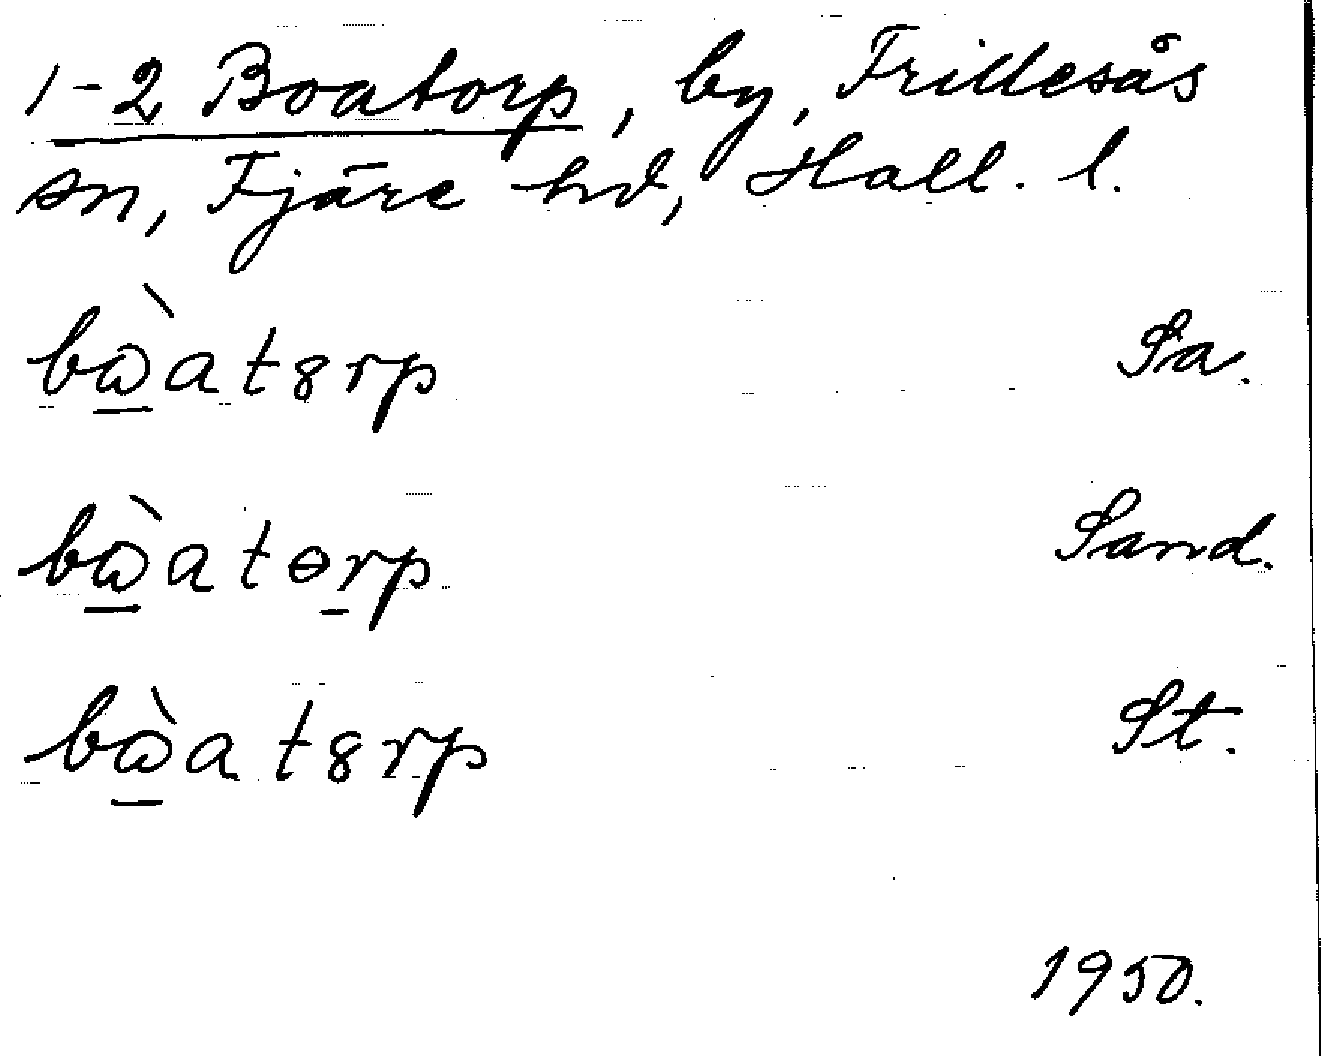 1-2 Boatorp, by, Frillesås
sn, Fjäre hd, Hall. l.
bɷ̀atȣrp Sa.
bɷ̀atɵrp Sand.
bɷ̀atȣrp St.
1950.